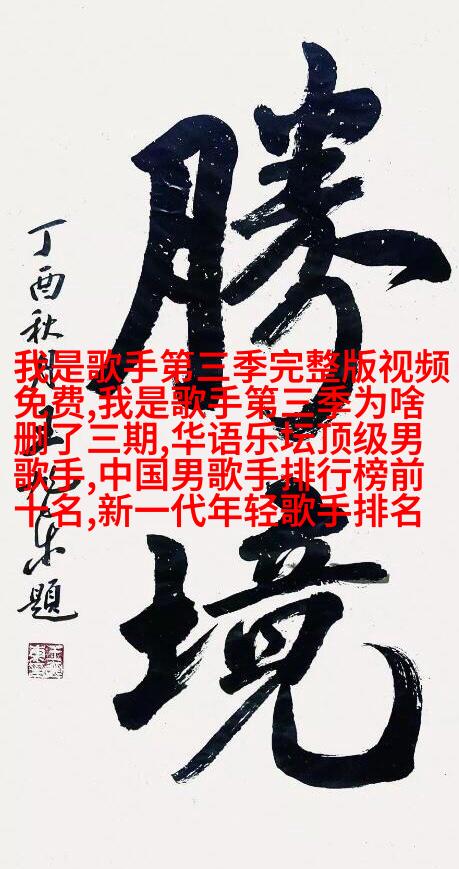 勝境
丁酉秋月王东題
我是歌手第三季完整版视频
免费,我是歌手第三季为啥
删了三期,华语乐坛顶级男
歌手,中国男歌手排行榜前
十名,新一代年轻歌手排名